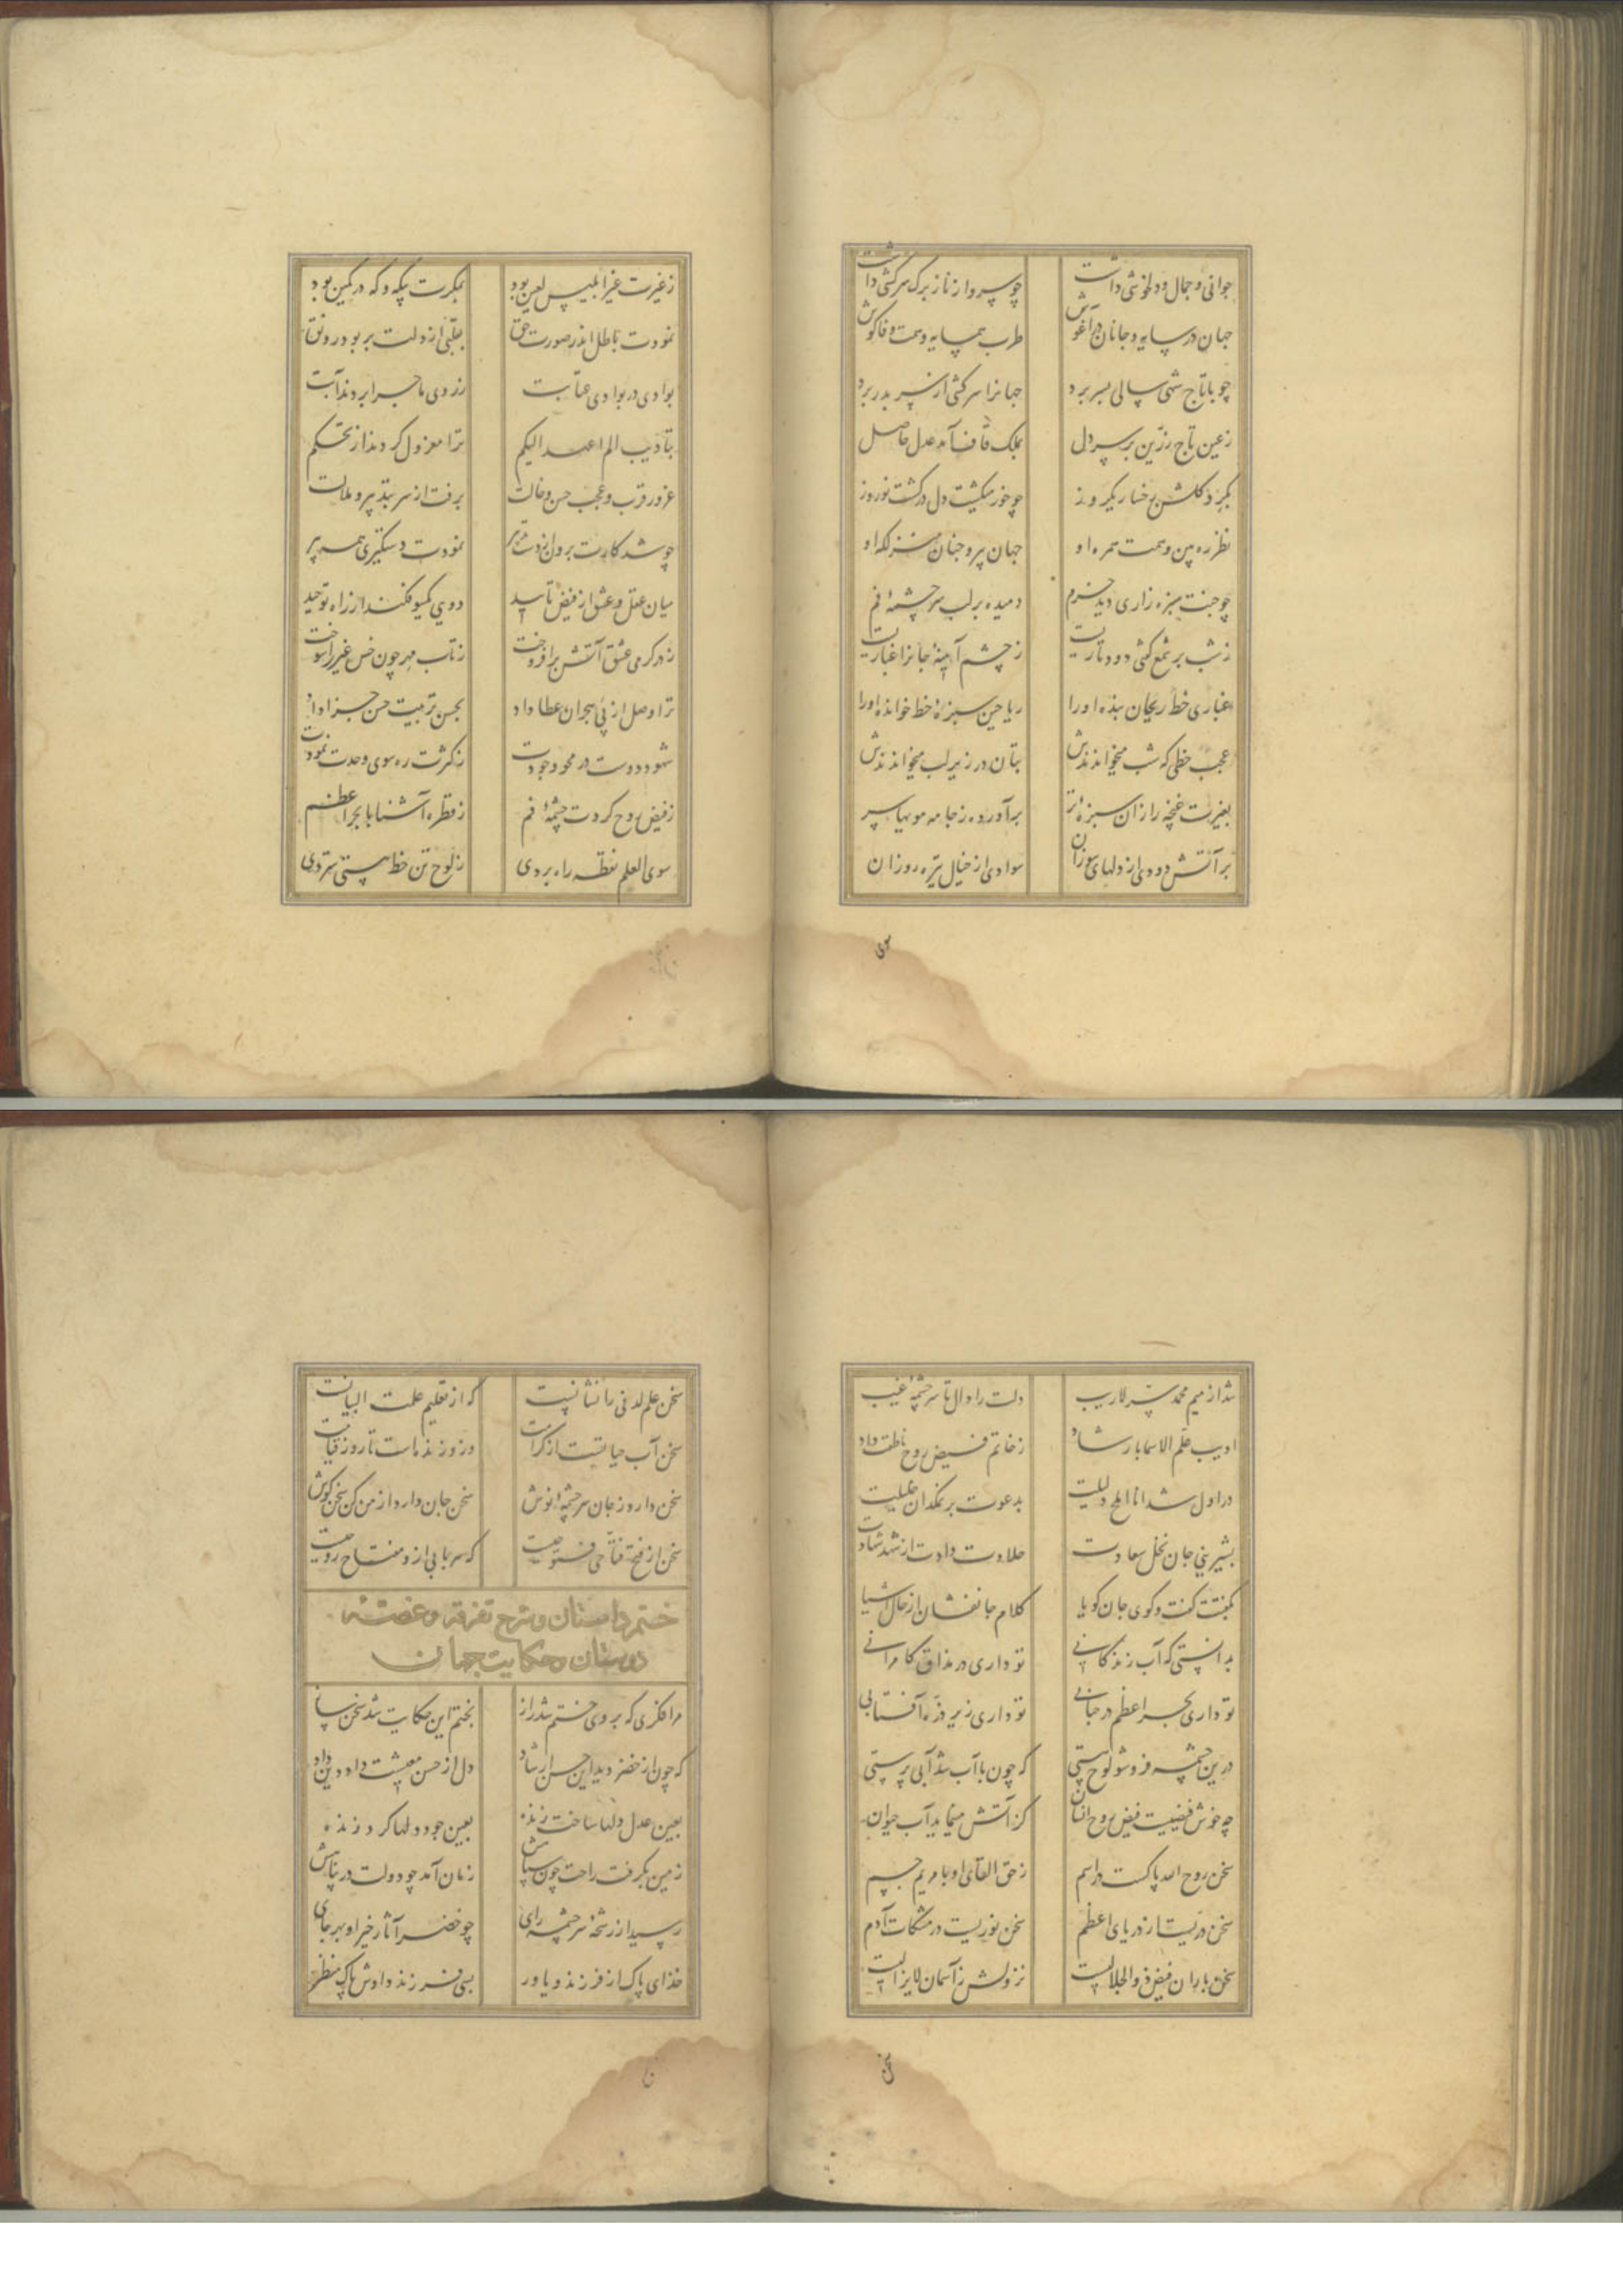 جوانی و جمال و دلخوشی داشت چو سرو از ناز برک سرکشی داشت
جهان در سایه و جانان در آغوش طرب همسایه و همت وفاکوش
چو با تاج شهی سالی بسر برد جهانرا سرکشی از سر بدر برد
ز عین تاج زرین بر سر دل بملک قاف آمد عدل حاصل
بکرد کلشن رخسار یکروز چو خور میکشت دل در کشت نوروز
نظر ره بین و همت همره او جهان پر و جنان منزلکه او
چو جنت سبزه زاری دید خرم دمیده بر لب سرچشمهٔ فم
ز شب بر شمع کفتی دود تاریست ز چشم آینهٔ جانرا غباریست
غباری خط ریحان بنده او را ریاحین سبزهٔ خط خوانده او را
عجب خطی که شب میخواندندش بتان در زیر لب میخواندندش
بغیرت غنچه را زان سبزهٔ تر برآورده ز جامه مویها سر
بر آتش دودی از دلهای سوزان سوادی از خیال تیره روزان
سوی
ز غیرت غیر ابلیس لعین بود بمکرت یکه و که در کمین بود
نمودت باطل اندر صورت حق بقلبی از دلت بربود رونق
بوادی در بوادی عتابت ز روی ماجرا بردند آبت
بتأدیب الم اعهد الیکم ترا معزول کردند از تحکم
غرور قرب و عجب حسن و حالت برفت از سر بتدبیر و ملالت
چو شد کارت برون از دست تدبیر نمودت دستکیری همت پیر
میان عقل و عشق از فیض تایید دویی یکسو فکند از راه توحید
ز در کرمی عشق آتش برافروخت ز تاب مهر چون خس غیر را سوخت
ترا وصل از پی هجران عطا داد بحسن تربیت حسن جزا داد
شهود دوست در محو وجودت ز کثرت ره سوی وحدت نمودت
ز فیض روح کردت چشمهٔ فم ز قطره آشنا با بحر اعظم
سوی العلم نقطه راه بردی ز لوح تن خط هستی ستردی
شد از میم محمد سر لاریب دلت را دال تا سرچشمهٔ غیب
ادیب علم الاسما به ارشاد ز خاتم فیض روح ناطقت داد
در اول شد انا املح دلیلت بدعوت بر نمکدان خلیلت
بشیرینی جان نخل سعادت حلاوت دادت از شهد شهادت
بکفتت کفت و کوی جان کویا کلام جانفشان از حال اشیا
بدانستی که آب زندکانی تو داری در مذاق کامرانی
تو داری بحر اعظم در حبابی تو داری زیر ذره آفتابی
درین چشمه فرو شو لوح هستی که چون با آب شد آبی پرستی
چه خوش فیضیست فیض روح انسان کز آتش مینماید آب حیوان
سخن روح الله پاکست در اسم ز حق القای او با مریم جسم
سخن دریست از دریای اعظم سخن نوریست در مشکات آدم
سخن باران فیض ذوالجلالست نزولش ز آسمان لایزالست
سخن
سخن علم لدنی را نشانیست که از تعلیم علمت البیانست
سخن آب حیاتست از کرامت وزو زنده است تا روز قیامت
سخن دارد ز جان سرچشمهٔ نوش سخن جان دارد از من کن سخن کوش
سخن از فتح فتاحی فتوحیست که سر یابی ازو مفتاح روحیست
ختم داستان و شرح تفرقه و غصهٔ
دوستان و حکایت جهان
مرا فکری که بر وی ختم شد راز بختم این حکایت شد سخن ساز
که چون از خضر دید این حسن ارشاد دل از حسن معیشت داد دین داد
بعین عدل دلها ساخت زنده بعین جود دلها کرد زنده
زمین بکرفت راحت چون سپاهش زمان آمد چو دولت در پناهش
رسید از رشحهٔ سرچشمه رای چو خضر آثار خیر او بهر جای
خدای پاک از فرزند و یاور بسی فرزند دادش پاک منظر